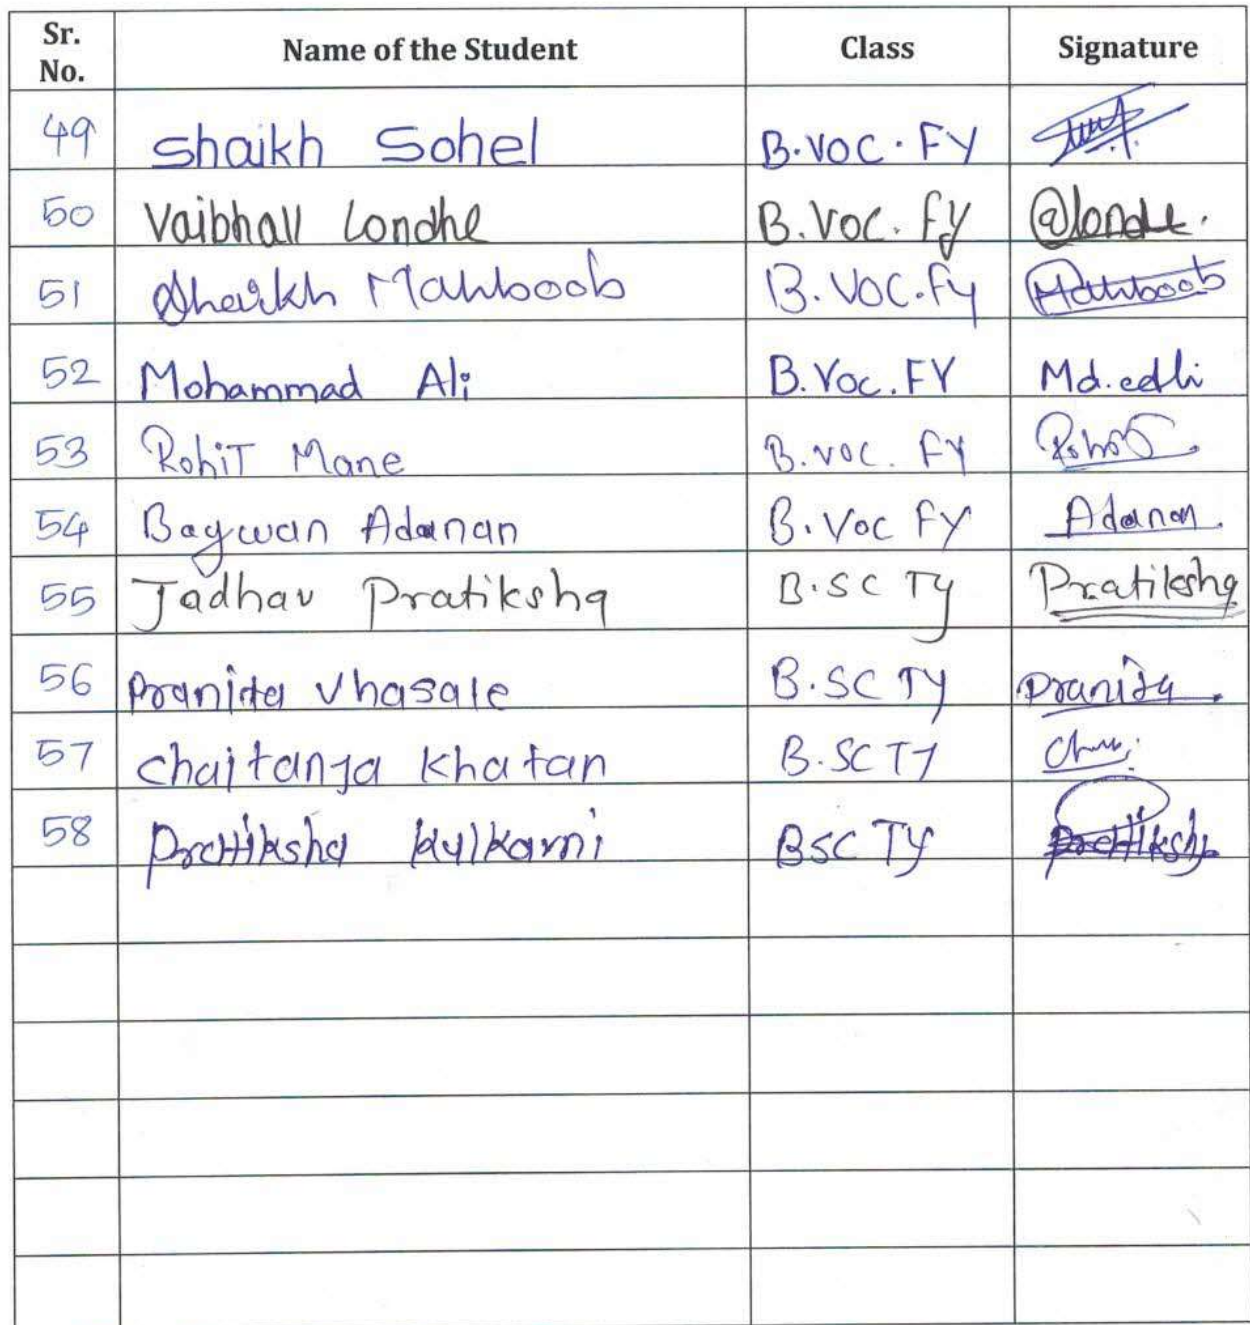 Sr. No. Name of the Student Class Signature
49 Shaikh Sohel B.VOC.FY
50 Vaibhall Londhe B.VOC.Fy @londhe.
51 Shaikh Mahboob B.VOC.Fy Mahboob
52 Mohammad Ali B.Voc.FY Md.
53 RohiT Mane B.VOC. FY Rohit
54 Bagwan Adanan B.Voc FY Adanan
55 Jadhav Pratiksha B.SC Ty Pratiksha
56 Pranita Vhasale B.SC Ty Pranita
57 Chaitanya Khatan B.SC TY
58 Pratiksha Kulkarni BSC TY Pratiksha